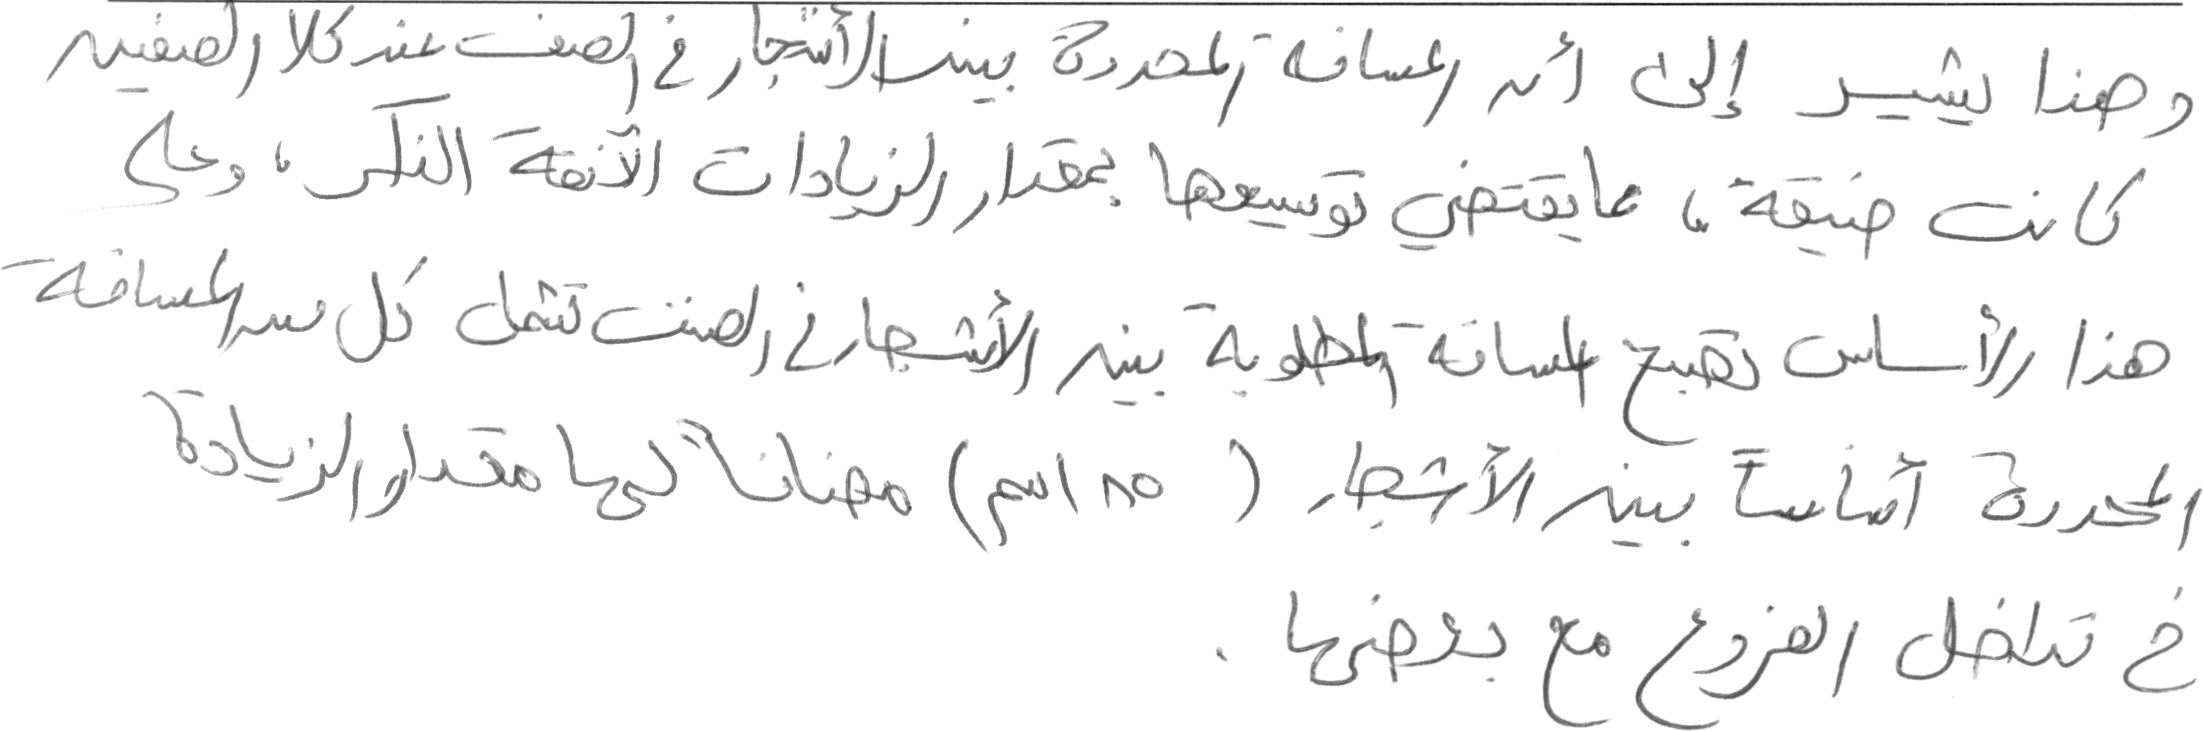 وهذا يشير إلى أن المسافة المحددة بين الأشجار في الصف عند كلا الصفين
كانت ضيقة، مما يقتضي توسيعها بمقدار الزيادات الآنفة الذكر، وعلى
هذا الأساس تصبح المسافة المطلوبة بين الأشجار في الصف تشمل كل من المسافة
المحددة أساساً بين الأشجار (١٨٥سم) مضافاً لها مقدار الزيادة
في تداخل الفروع مع بعضها .